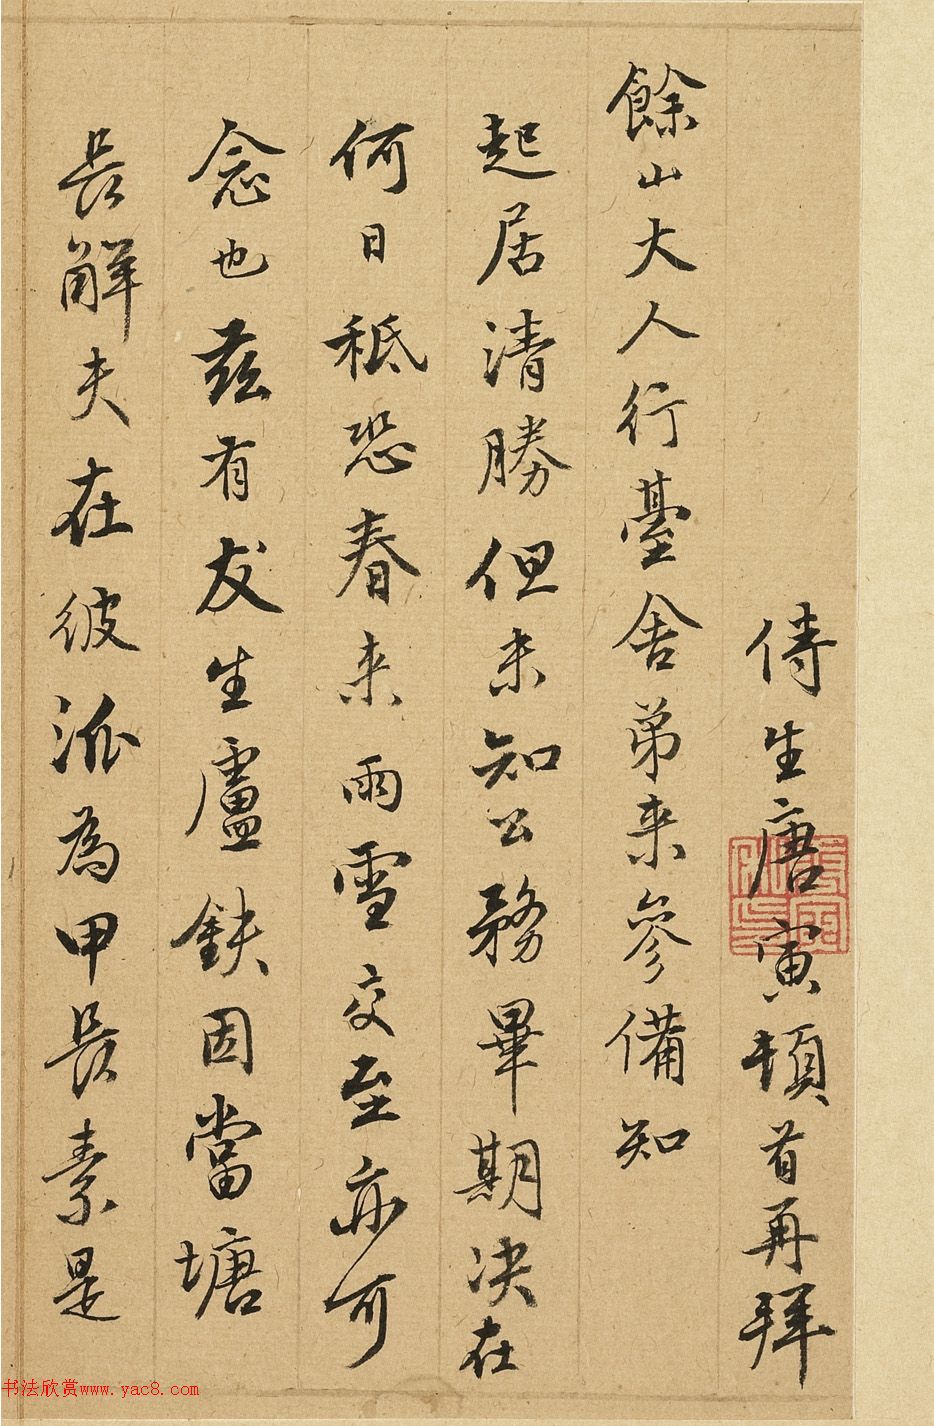 侍生唐寅頓首再拜
餘山大人行臺舍弟来參備知
起居清勝但未知公務畢期决在
何日秪恐春来雨雪交至亦可
念也兹有友生盧鈇因當塘
長解夫在彼泒為甲長素是
书法欣赏www.yac8.com